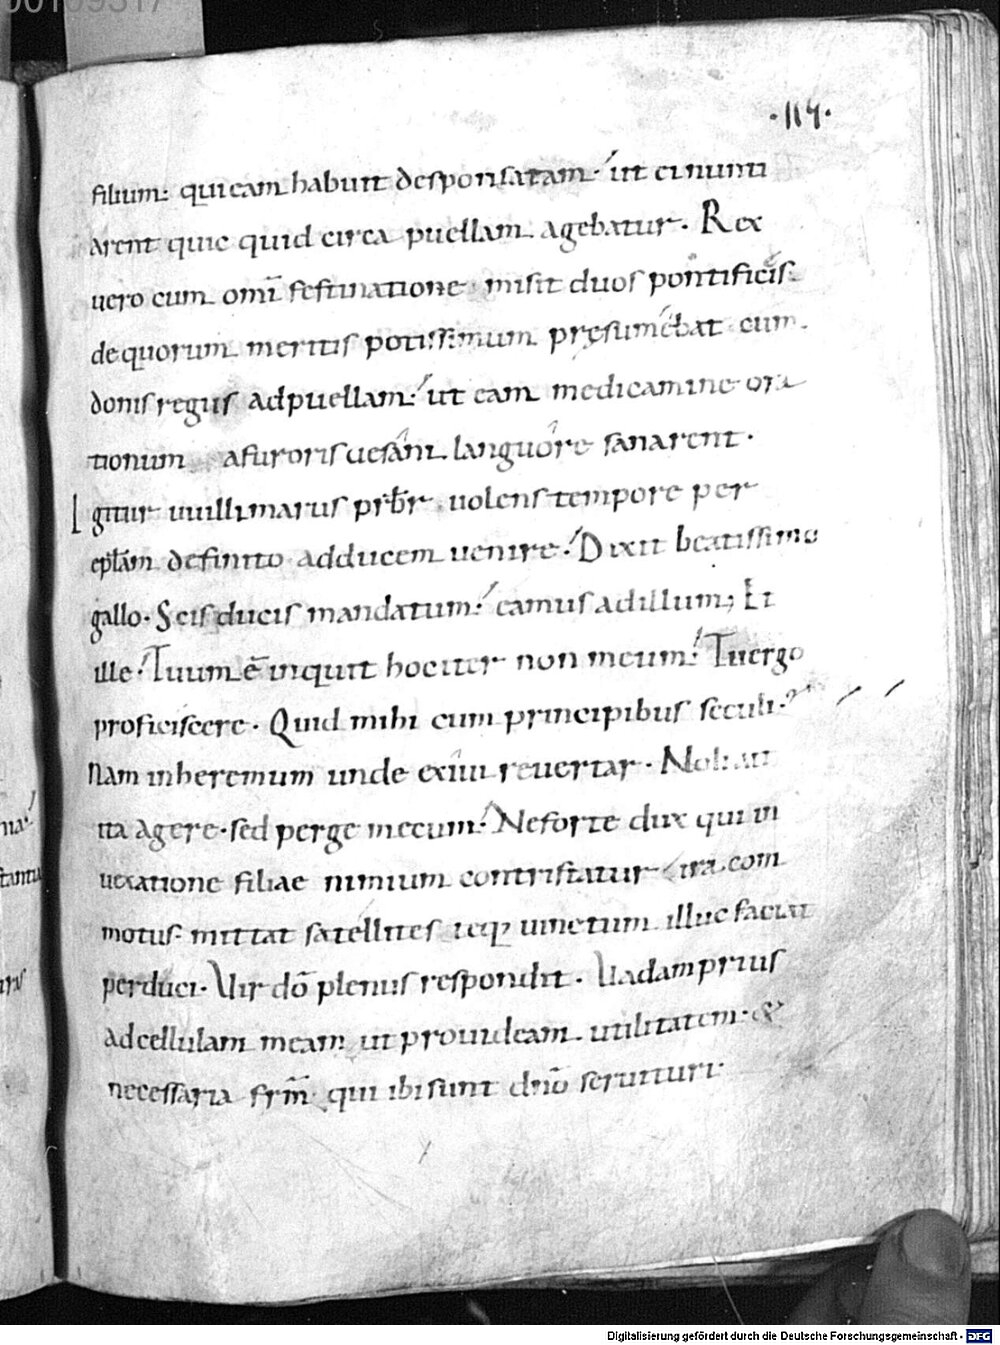 ·114·
filium: qui eam habuit desponsatam· ut ei nunti
arent quic quid circa puellam agebatur· Rex
uero cum omī festinatione misit duos pontificis
de quorum meritis potissimum pręsumebat cum
donis regiis ad puellam· ut eam medicamine ora
tionum a furoris uesani languore sanarent·
Igitur uuillimarus prb̄r uolens tempore per
eplām definito ad ducem uenire· Dixit beatissimo
gallo· Scis ducis mandatum· eamus ad illum; Et
ille· Tuum ē inquit hoc iter non meum· Tu ergo
proficiscere· Quid mihi cum principibus seculi·
Nam in heremum unde exiui reuertar· Noli
ita agere· sed perge mecum· Ne forte dux qui in
uexatione filiae nimium contristatur ira com
motus· mittat satellites uinctum illuc faciat
perduci· Vir dō plenus respondit· Vadam prius
ad cellulam meam ut prouideam utilitatem· &
necessaria frm̄ qui ibi sunt dnō seruituri·
Digitalisierung gefördert durch die Deutsche Forschungsgemeinschaft - DFG